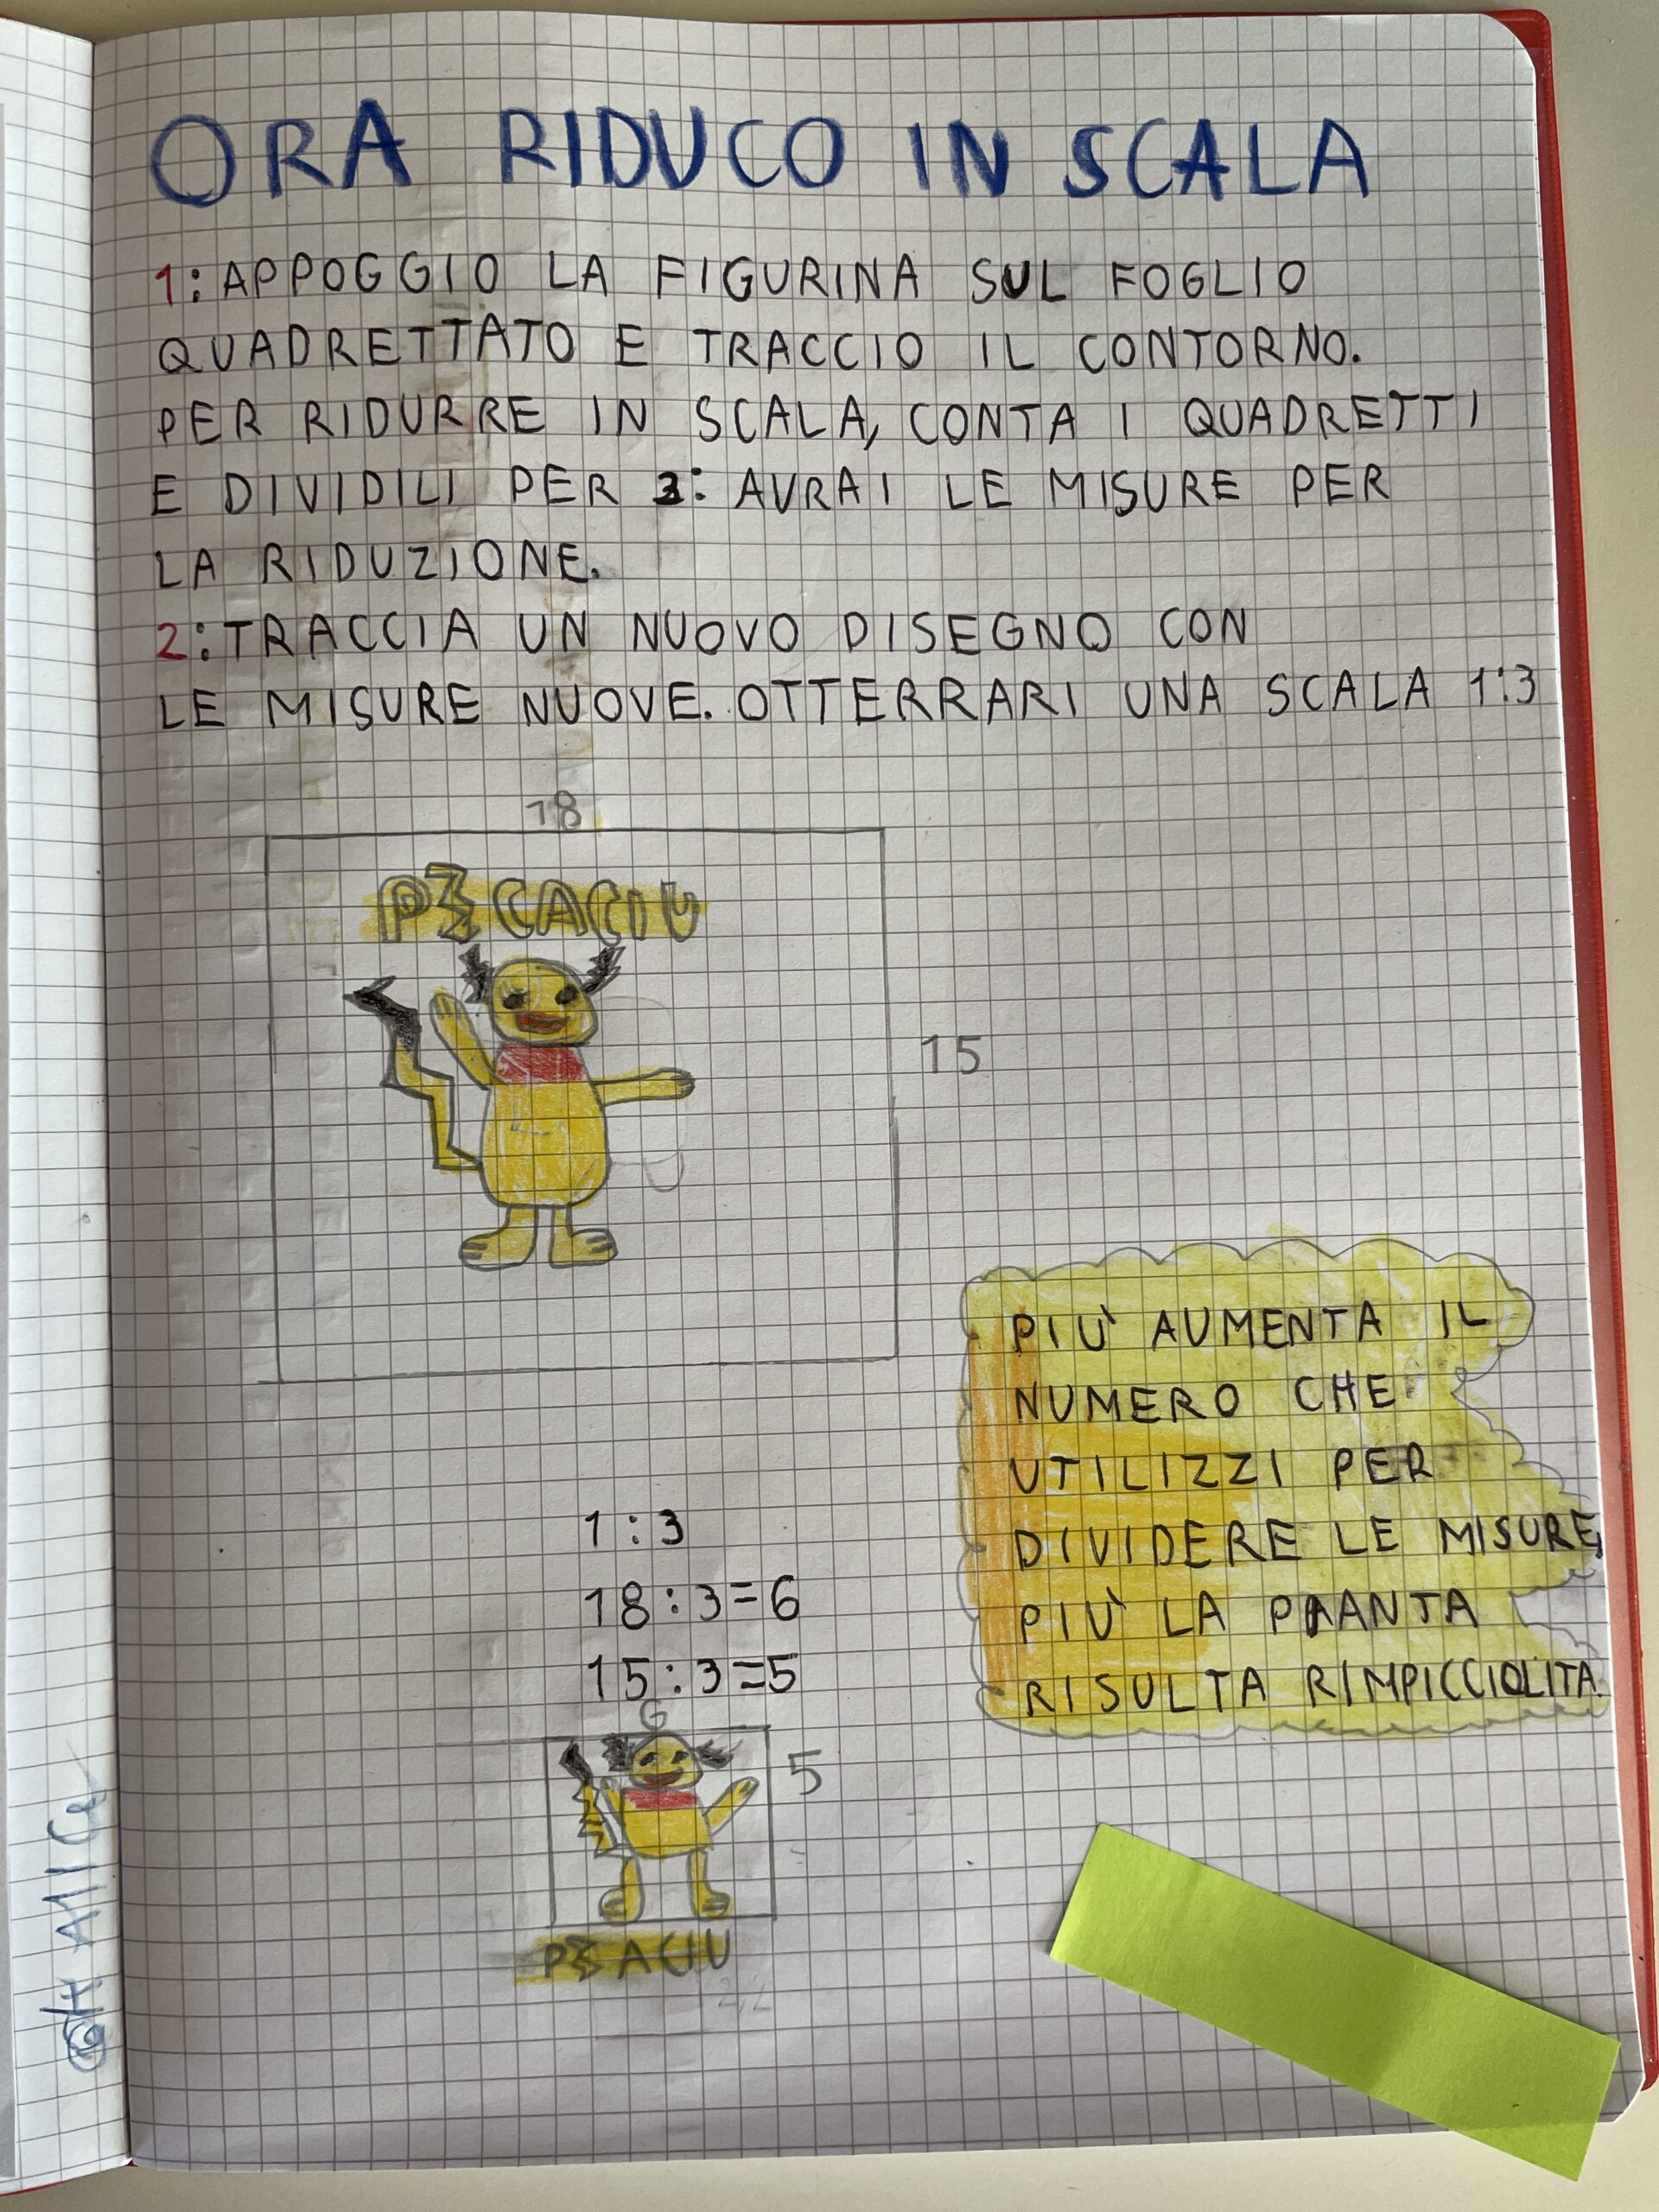 ORA RIDUCO IN SCALA
1: APPOGGIO LA FIGURINA SUL FOGLIO
QUADRETTATO E TRACCIO IL CONTORNO.
PER RIDURRE IN SCALA, CONTA I QUADRETTI
E DIVIDILI PER 3: AVRAI LE MISURE PER
LA RIDUZIONE.
2: TRACCIA UN NUOVO DISEGNO CON
LE MISURE NUOVE. OTTERRARI UNA SCALA 1:3
18
PICACIU
15
PIÙ AUMENTA IL
NUMERO CHE
UTILIZZI PER
DIVIDERE LE MISURE,
PIÙ LA PIANTA
RISULTA RIMPICCIOLITA.
1:3
18:3=6
15:3=5
6
5